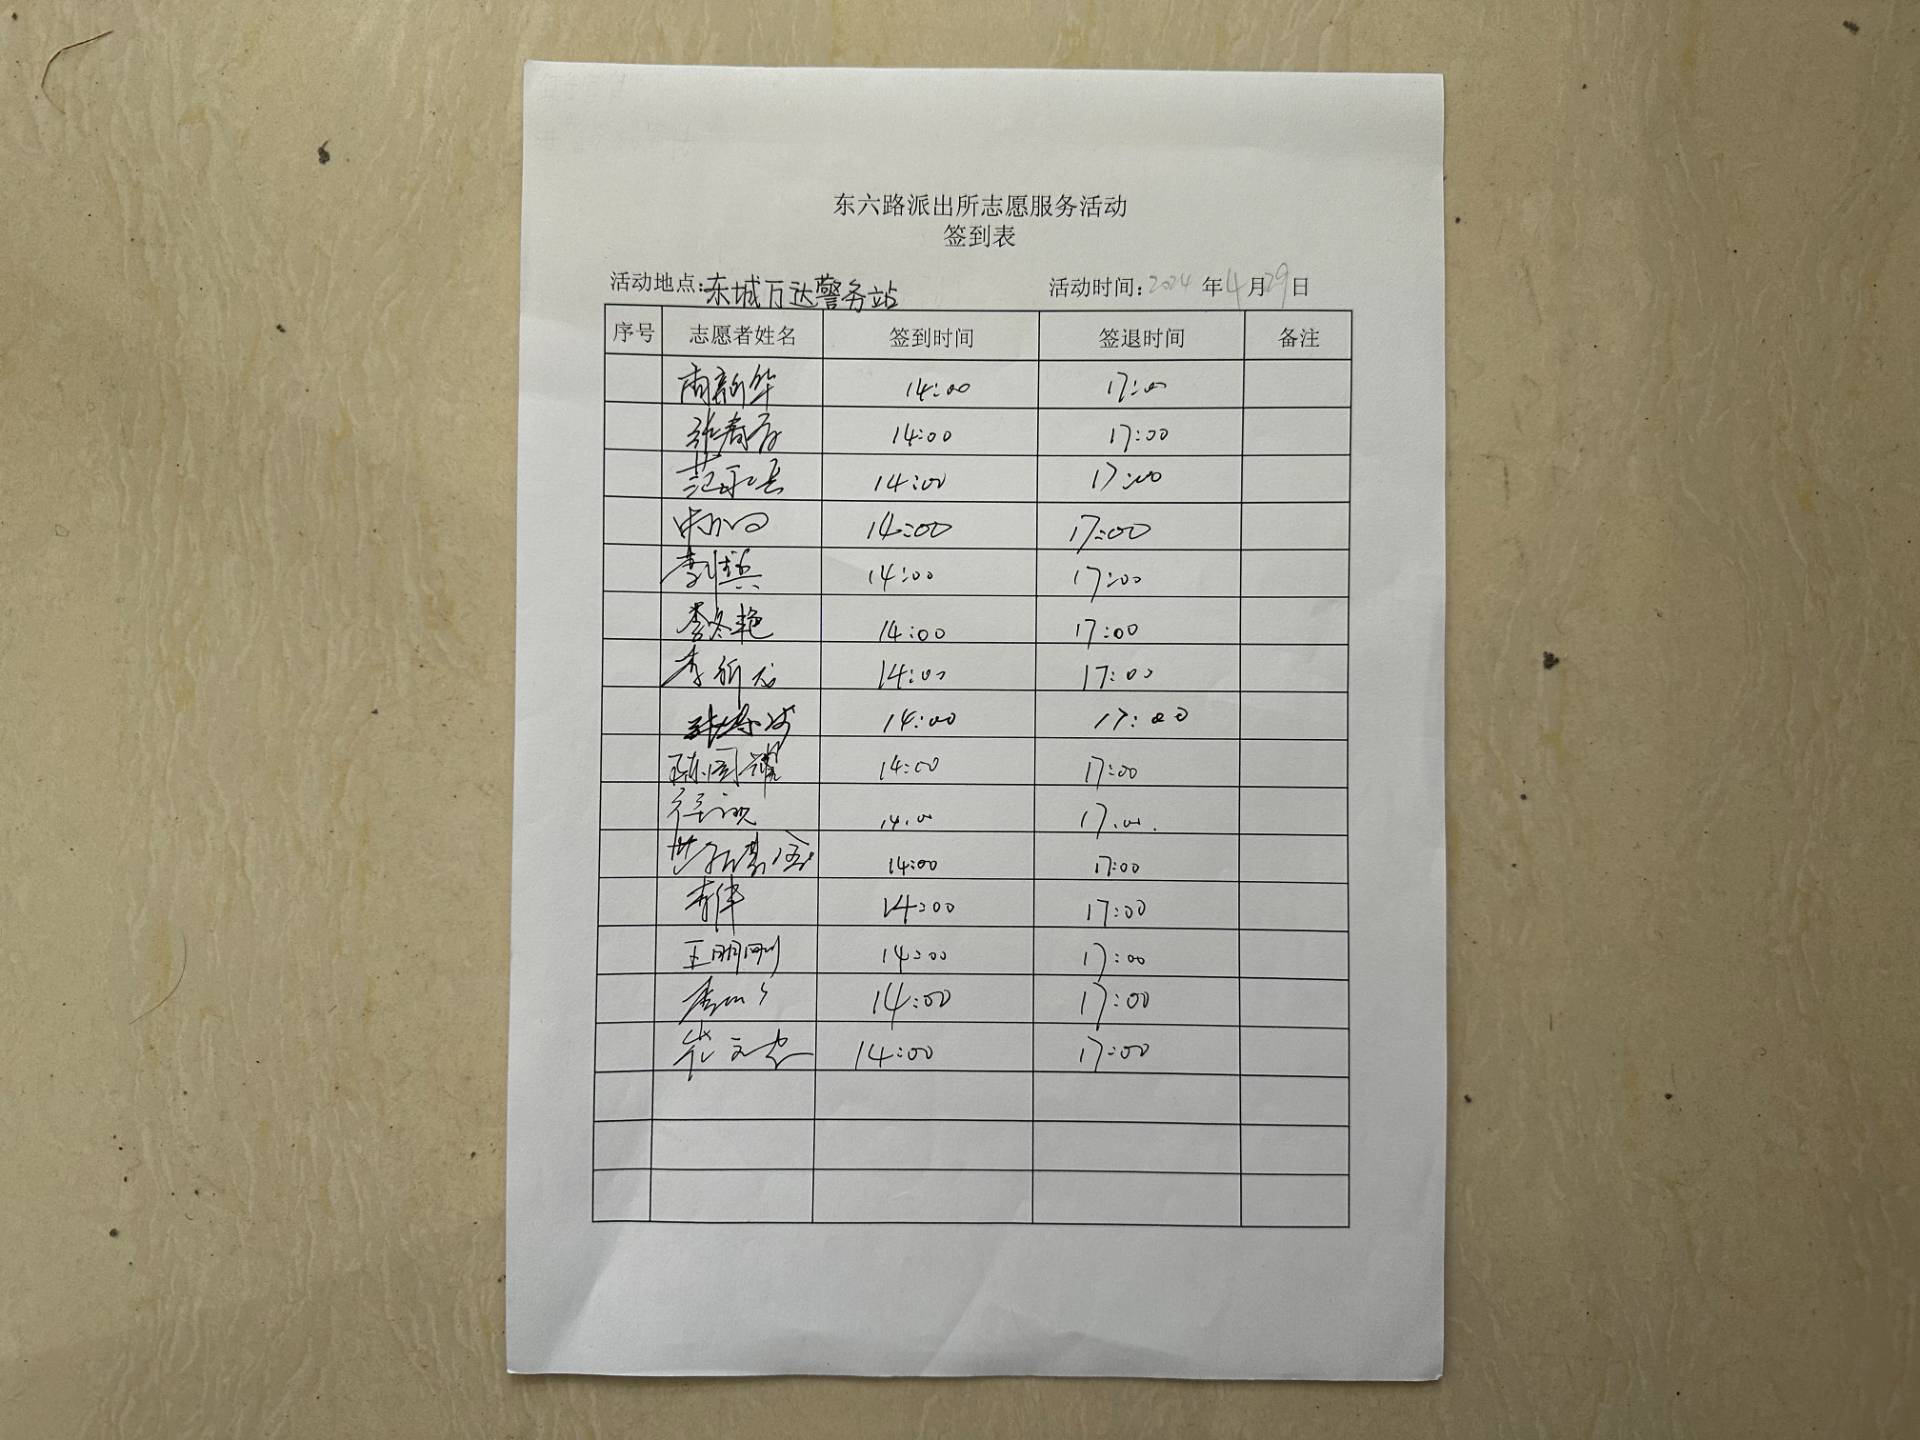 东六路派出所志愿服务活动
签到表
活动地点：东城万达警务站 活动时间：2024 年 4 月 29 日
序号 志愿者姓名 签到时间 签退时间 备注
尚新华 14:00 17:00
张春芳 14:00 17:00
14:00 17:00
14:00 17:00
14:00 17:00
李冬艳 14:00 17:00
李新龙 14:00 17:00
14:00 17:00
陈国耀 14:00 17:00
14:00 17:00
14:00 17:00
李伟 14:00 17:00
王明刚 14:00 17:00
14:00 17:00
崔文忠 14:00 17:00